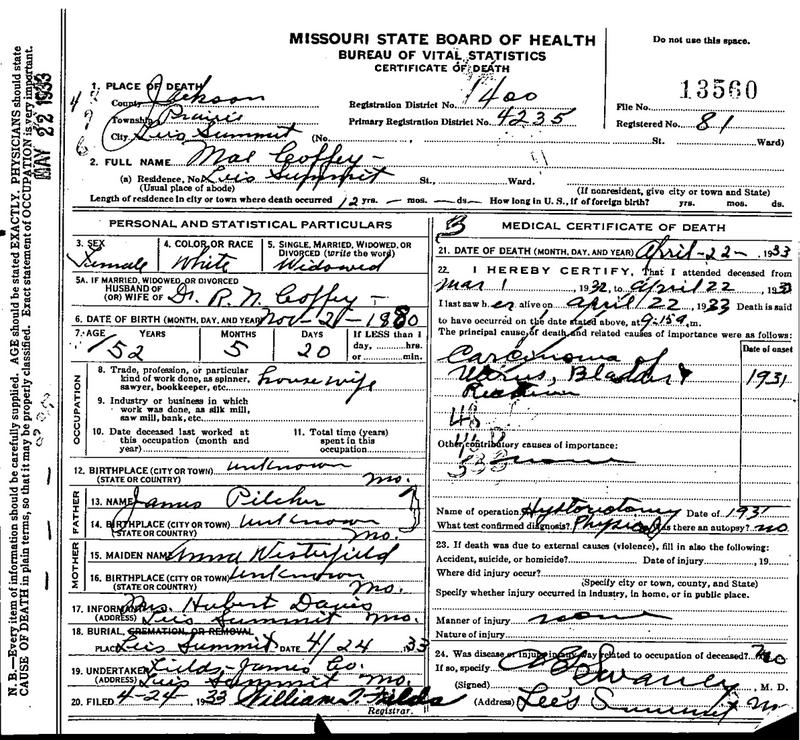 MISSOURI STATE BOARD OF HEALTH
BUREAU OF VITAL STATISTICS
CERTIFICATE OF DEATH
Do not use this space.
13560
MAY 22 1933
N. B.—Every item of information should be carefully supplied. AGE should be stated EXACTLY. PHYSICIANS should state
CAUSE OF DEATH in plain terms, so that it may be properly classified. Exact statement of OCCUPATION is very important.
1. PLACE OF DEATH
County Jackson
Registration District No. 400
File No.
Township Prairie
Primary Registration District No. 4235
Registered No. 81
City Lees Summit (No. , St. Ward)
2. FULL NAME Mae Coffey
(a) Residence, No. Lees Summit St., Ward.
(Usual place of abode) (If nonresident, give city or town and State)
Length of residence in city or town where death occurred 12 yrs. mos. ds. How long in U. S., if of foreign birth? yrs. mos. ds.
PERSONAL AND STATISTICAL PARTICULARS
3. SEX Female
4. COLOR OR RACE White
5. SINGLE, MARRIED, WIDOWED, OR DIVORCED (write the word) Widowed
5A. IF MARRIED, WIDOWED OR DIVORCED
HUSBAND OF
(OR) WIFE OF Dr. R. N. Coffey
6. DATE OF BIRTH (MONTH, DAY, AND YEAR) Nov-2-1880
7. AGE YEARS MONTHS DAYS If LESS than 1
day, hrs.
or min.
52 5 20
OCCUPATION
8. Trade, profession, or particular
kind of work done, as spinner,
sawyer, bookkeeper, etc. housewife
9. Industry or business in which
work was done, as silk mill,
saw mill, bank, etc.
10. Date deceased last worked at
this occupation (month and
year)
11. Total time (years)
spent in this
occupation
12. BIRTHPLACE (CITY OR TOWN) unknown
(STATE OR COUNTRY) Mo.
FATHER
13. NAME James Pilcher
14. BIRTHPLACE (CITY OR TOWN) unknown
(STATE OR COUNTRY) Mo.
MOTHER
15. MAIDEN NAME Anna Westerfield
16. BIRTHPLACE (CITY OR TOWN) unknown
(STATE OR COUNTRY) Mo.
17. INFORMANT Mrs. Hubert Davis
(ADDRESS) Lees Summit Mo.
18. BURIAL, CREMATION, OR REMOVAL
PLACE Lees Summit DATE 4/24 33
19. UNDERTAKER Fields-James Co.
(ADDRESS) Lees Summit Mo.
20. FILED 4-24, 1933 William T. Fields
Registrar.
MEDICAL CERTIFICATE OF DEATH
21. DATE OF DEATH (MONTH, DAY, AND YEAR) April-22-, 1933
22. I HEREBY CERTIFY, That I attended deceased from
Mar 1, 1932, to April 22, 1933
I last saw her alive on April 22, 1933 Death is said
to have occurred on the date stated above, at m.
The principal cause of death and related causes of importance were as follows:
Date of onset
Carcinoma of
Uterus, Bladder & 1931
Rectum
48
Other contributory causes of importance:
none
Name of operation Date of 1931
What test confirmed diagnosis? Physical Was there an autopsy? no
23. If death was due to external causes (violence), fill in also the following:
Accident, suicide, or homicide? Date of injury , 19
Where did injury occur?
(Specify city or town, county, and State)
Specify whether injury occurred in industry, in home, or in public place.
Manner of injury none
Nature of injury
24. Was disease or injury in any way related to occupation of deceased? No
If so, specify
(Signed) Swaney, M. D.
(Address) Lee's Summit Mo